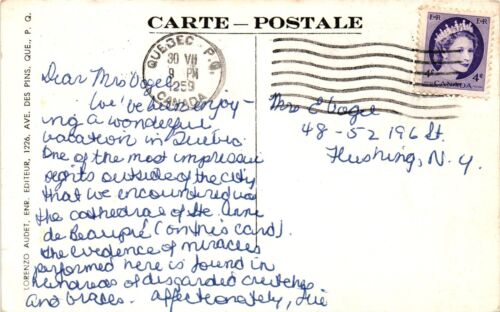 CARTE — POSTALE
QUEBEC P.Q.
30 VII
9 PM
1959
CANADA
E R
E R
4¢
CANADA
LORENZO AUDET, ENR. EDITEUR, 1226, AVE. DES PINS, QUE., P. Q.
Dear Mrs Vogel
We've been enjoy-
ing a wonderful
vacation in Quebec
One of the most impressive
sights outside of the city
that we encountered was
the cathedral of Ste. Anne
de Beaupré (on this card).
the evidence of miracles
performed here is found in
hundreds of disgarded crutches
and braces. Affectionately,
Mrs E Vogel
48-52 196 St.
Flushing, N.Y.